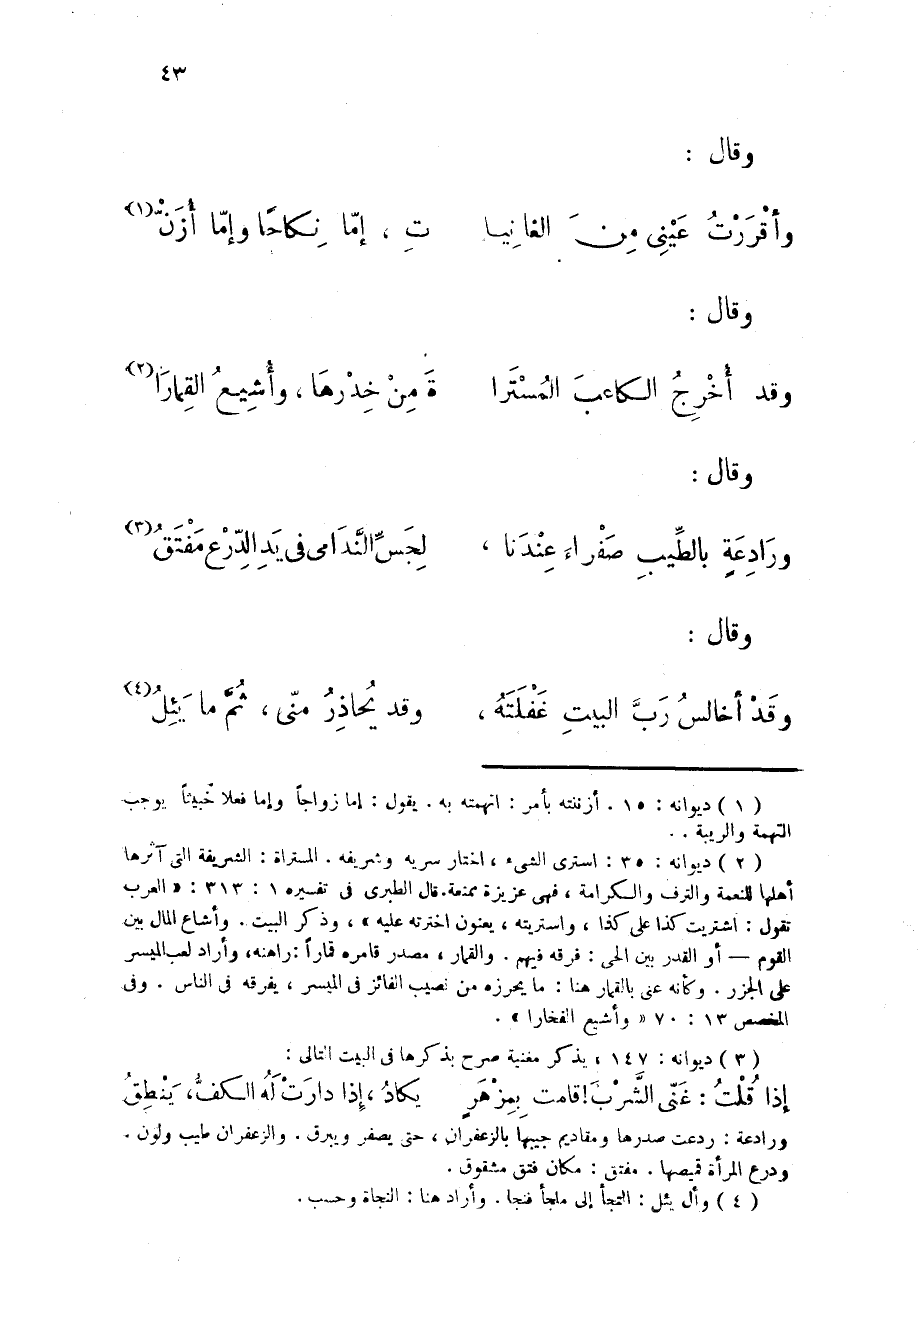 ٤٣
وقال :
وأقْرَرْتُ عَيْنِي مِنَ الغانِيا تِ ، إمَّا نِكاحًا وإمَّا أُزَنّْ (١)
وقال :
وقد أُخْرِجُ الكاعبَ المُسْتَرا ةَ مِنْ خِدْرِهَا ، وأُشِيعُ القِمارَا (٢)
وقال :
ورَادِعَةٍ بالطِّيبِ صَفْراءَ عِنْدَنا ، لِجَسِّ النَّدَامى فى يَدِ الدِّرْعِ مَفْتَقُ (٣)
وقال :
وقَدْ أخالسُ رَبَّ البيتِ غَفْلَتَهُ ، وقد يُحاذِرُ منّى ، ثُمَّ ما يَئِلُ (٤)
( ١ ) ديوانه : ١٥ . أزننته بأمر : اتهمته به . يقول : إما زواجاً وإما فعلا خبيثاً يوجب
التهمة والريبة . .
( ٢ ) ديوانه : ٣٥ : استرى الشىء ، اختار سريه وشريفه . المستراة : الشريفة التى آثرها
أهلها للنعمة والترف والكرامة ، فهى عزيزة ممنعة. قال الطبرى فى تفسيره ١ : ٣١٣ : « العرب
تقول : اشتريت كذا على كذا ، واستريته ، يعنون اخترته عليه » ، وذكر البيت . وأشاع المال بين
القوم — أو القدر بين الحى : فرقه فيهم . والقمار ، مصدر قامره قماراً : راهنه، وأراد لعب الميسر
على الجزر . وكأنه عنى بالقمار هنا : ما يحرزه من نصيب الفائز فى الميسر ، يفرقه فى الناس . وفى
المخصص ١٣ : ٧٠ « وأشيع الفخارا » .
( ٣ ) ديوانه : ١٤٧ ، يذكر مغنية صرح بذكرها فى البيت التالى :
إذا قُلْتُ : غَنِّى الشَّرْبَ ! قامت بِمِزْهَرٍ يكادُ ، إذا دارَتْ لَهُ الكفُّ ، يَنْطِقُ
ورادعة : ردعت صدرها ومقاديم جيبها بالزعفران ، حتى يصفر ويبرق . والزعفران طيب ولون .
ودرع المرأة قميصها . مفتق : مكان فتق مشقوق .
( ٤ ) وأل يئل : التجأ إلى ملجأ فنجا . وأراد هنا : النجاة وحسب .